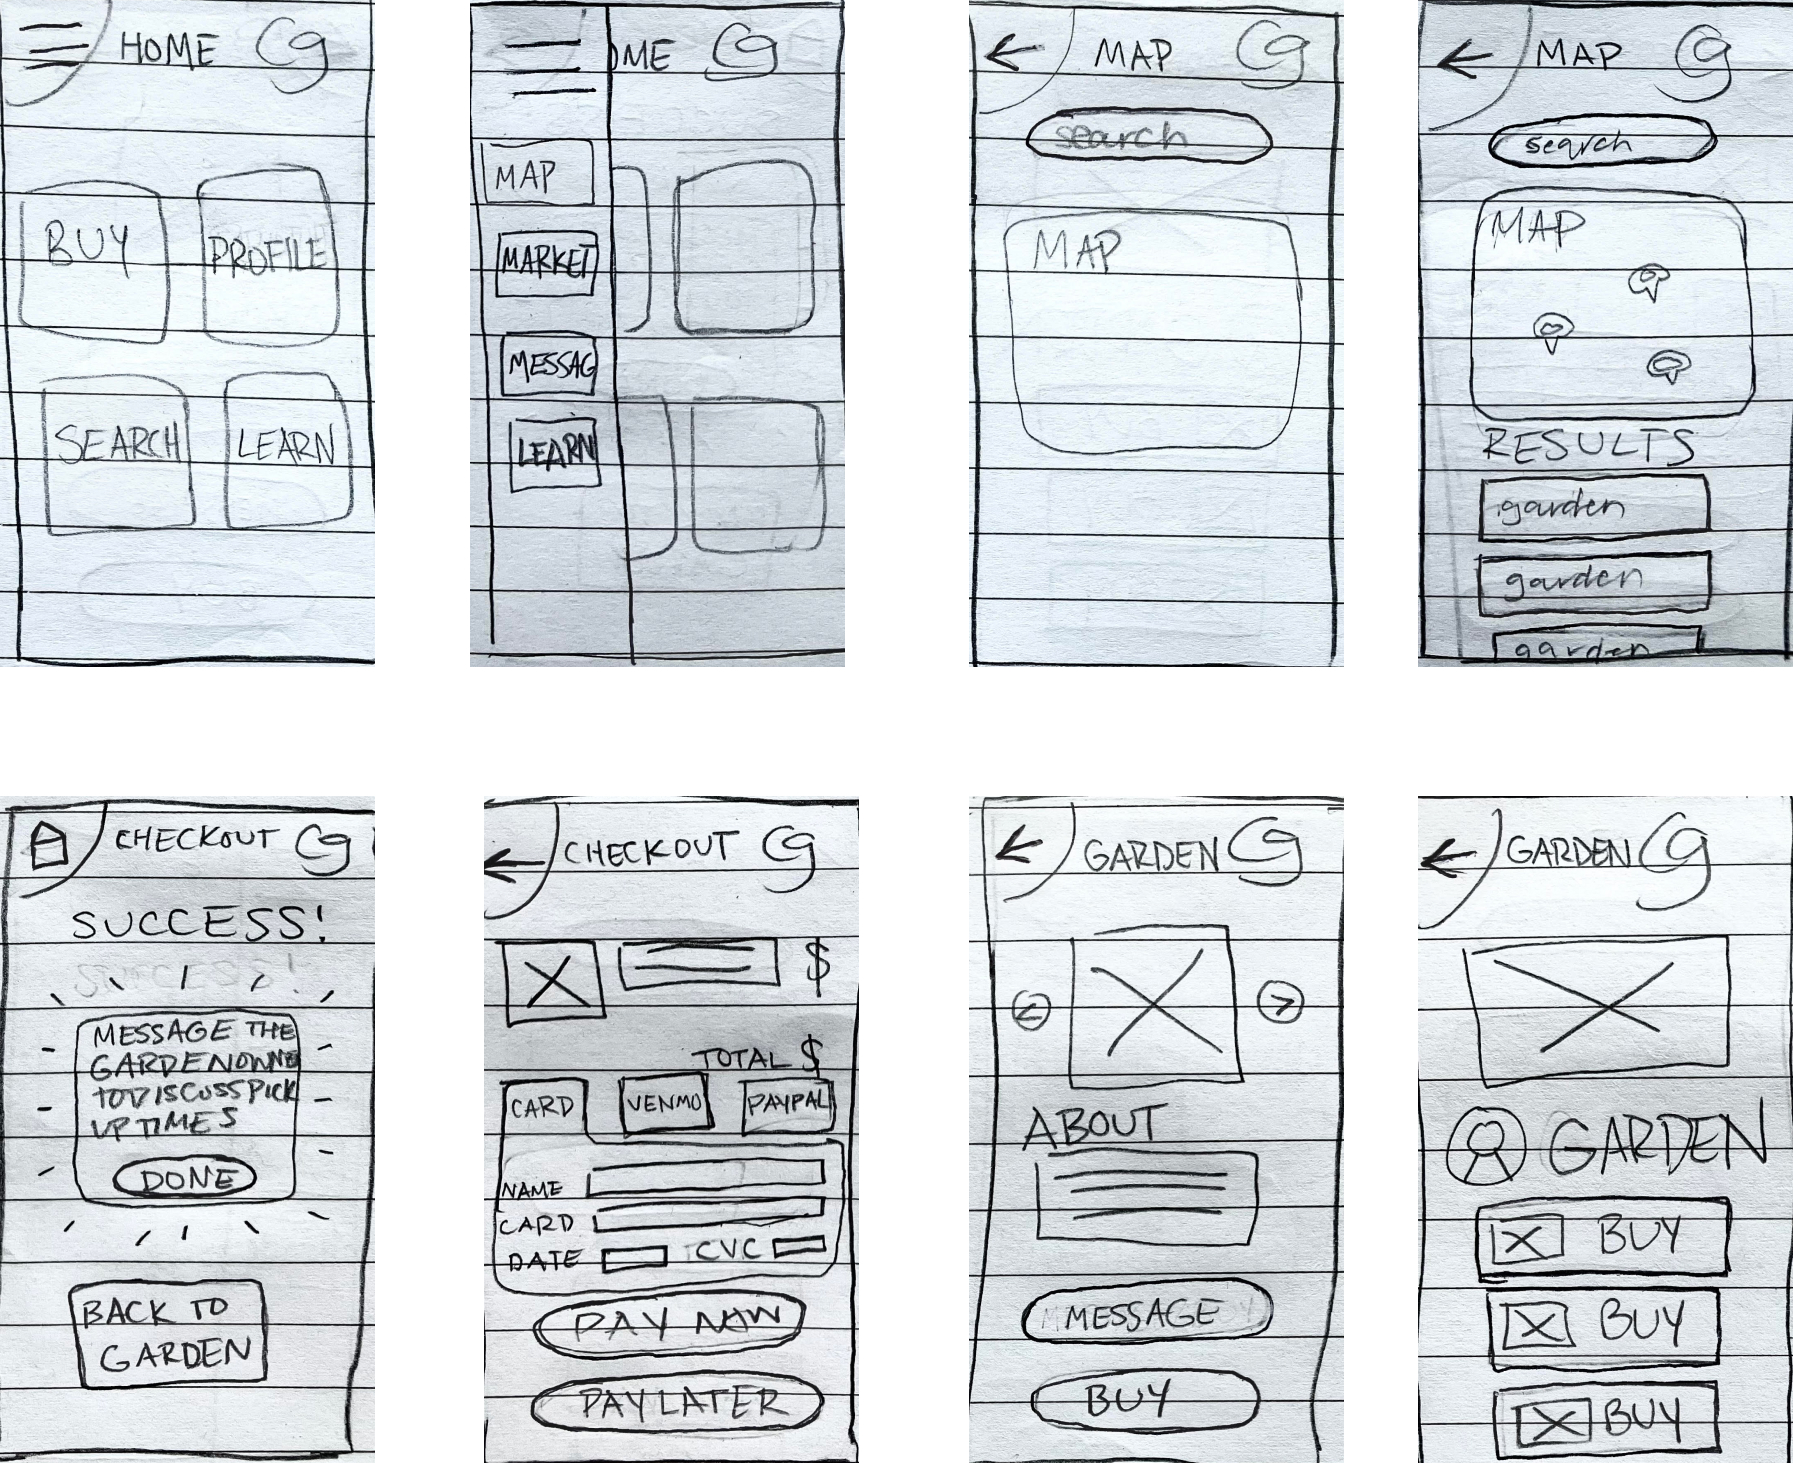 HOME Cg
BUY PROFILE
SEARCH LEARN
OME Cg
MAP
MARKET
MESSAG
LEARN
MAP Cg
search
MAP
MAP Cg
search
MAP
RESULTS
garden
garden
garden
CHECKOUT Cg
SUCCESS!
SUCCESS!
MESSAGE THE
GARDEN OWNE
TO DISCUSS PICK
UP TIMES
DONE
BACK TO
GARDEN
CHECKOUT Cg
$
TOTAL $
CARD VENMO PAYPAL
NAME
CARD
DATE CVC
PAY NOW
PAY LATER
GARDEN Cg
< >
ABOUT
MESSAGE
BUY
GARDEN Cg
GARDEN
BUY
BUY
BUY